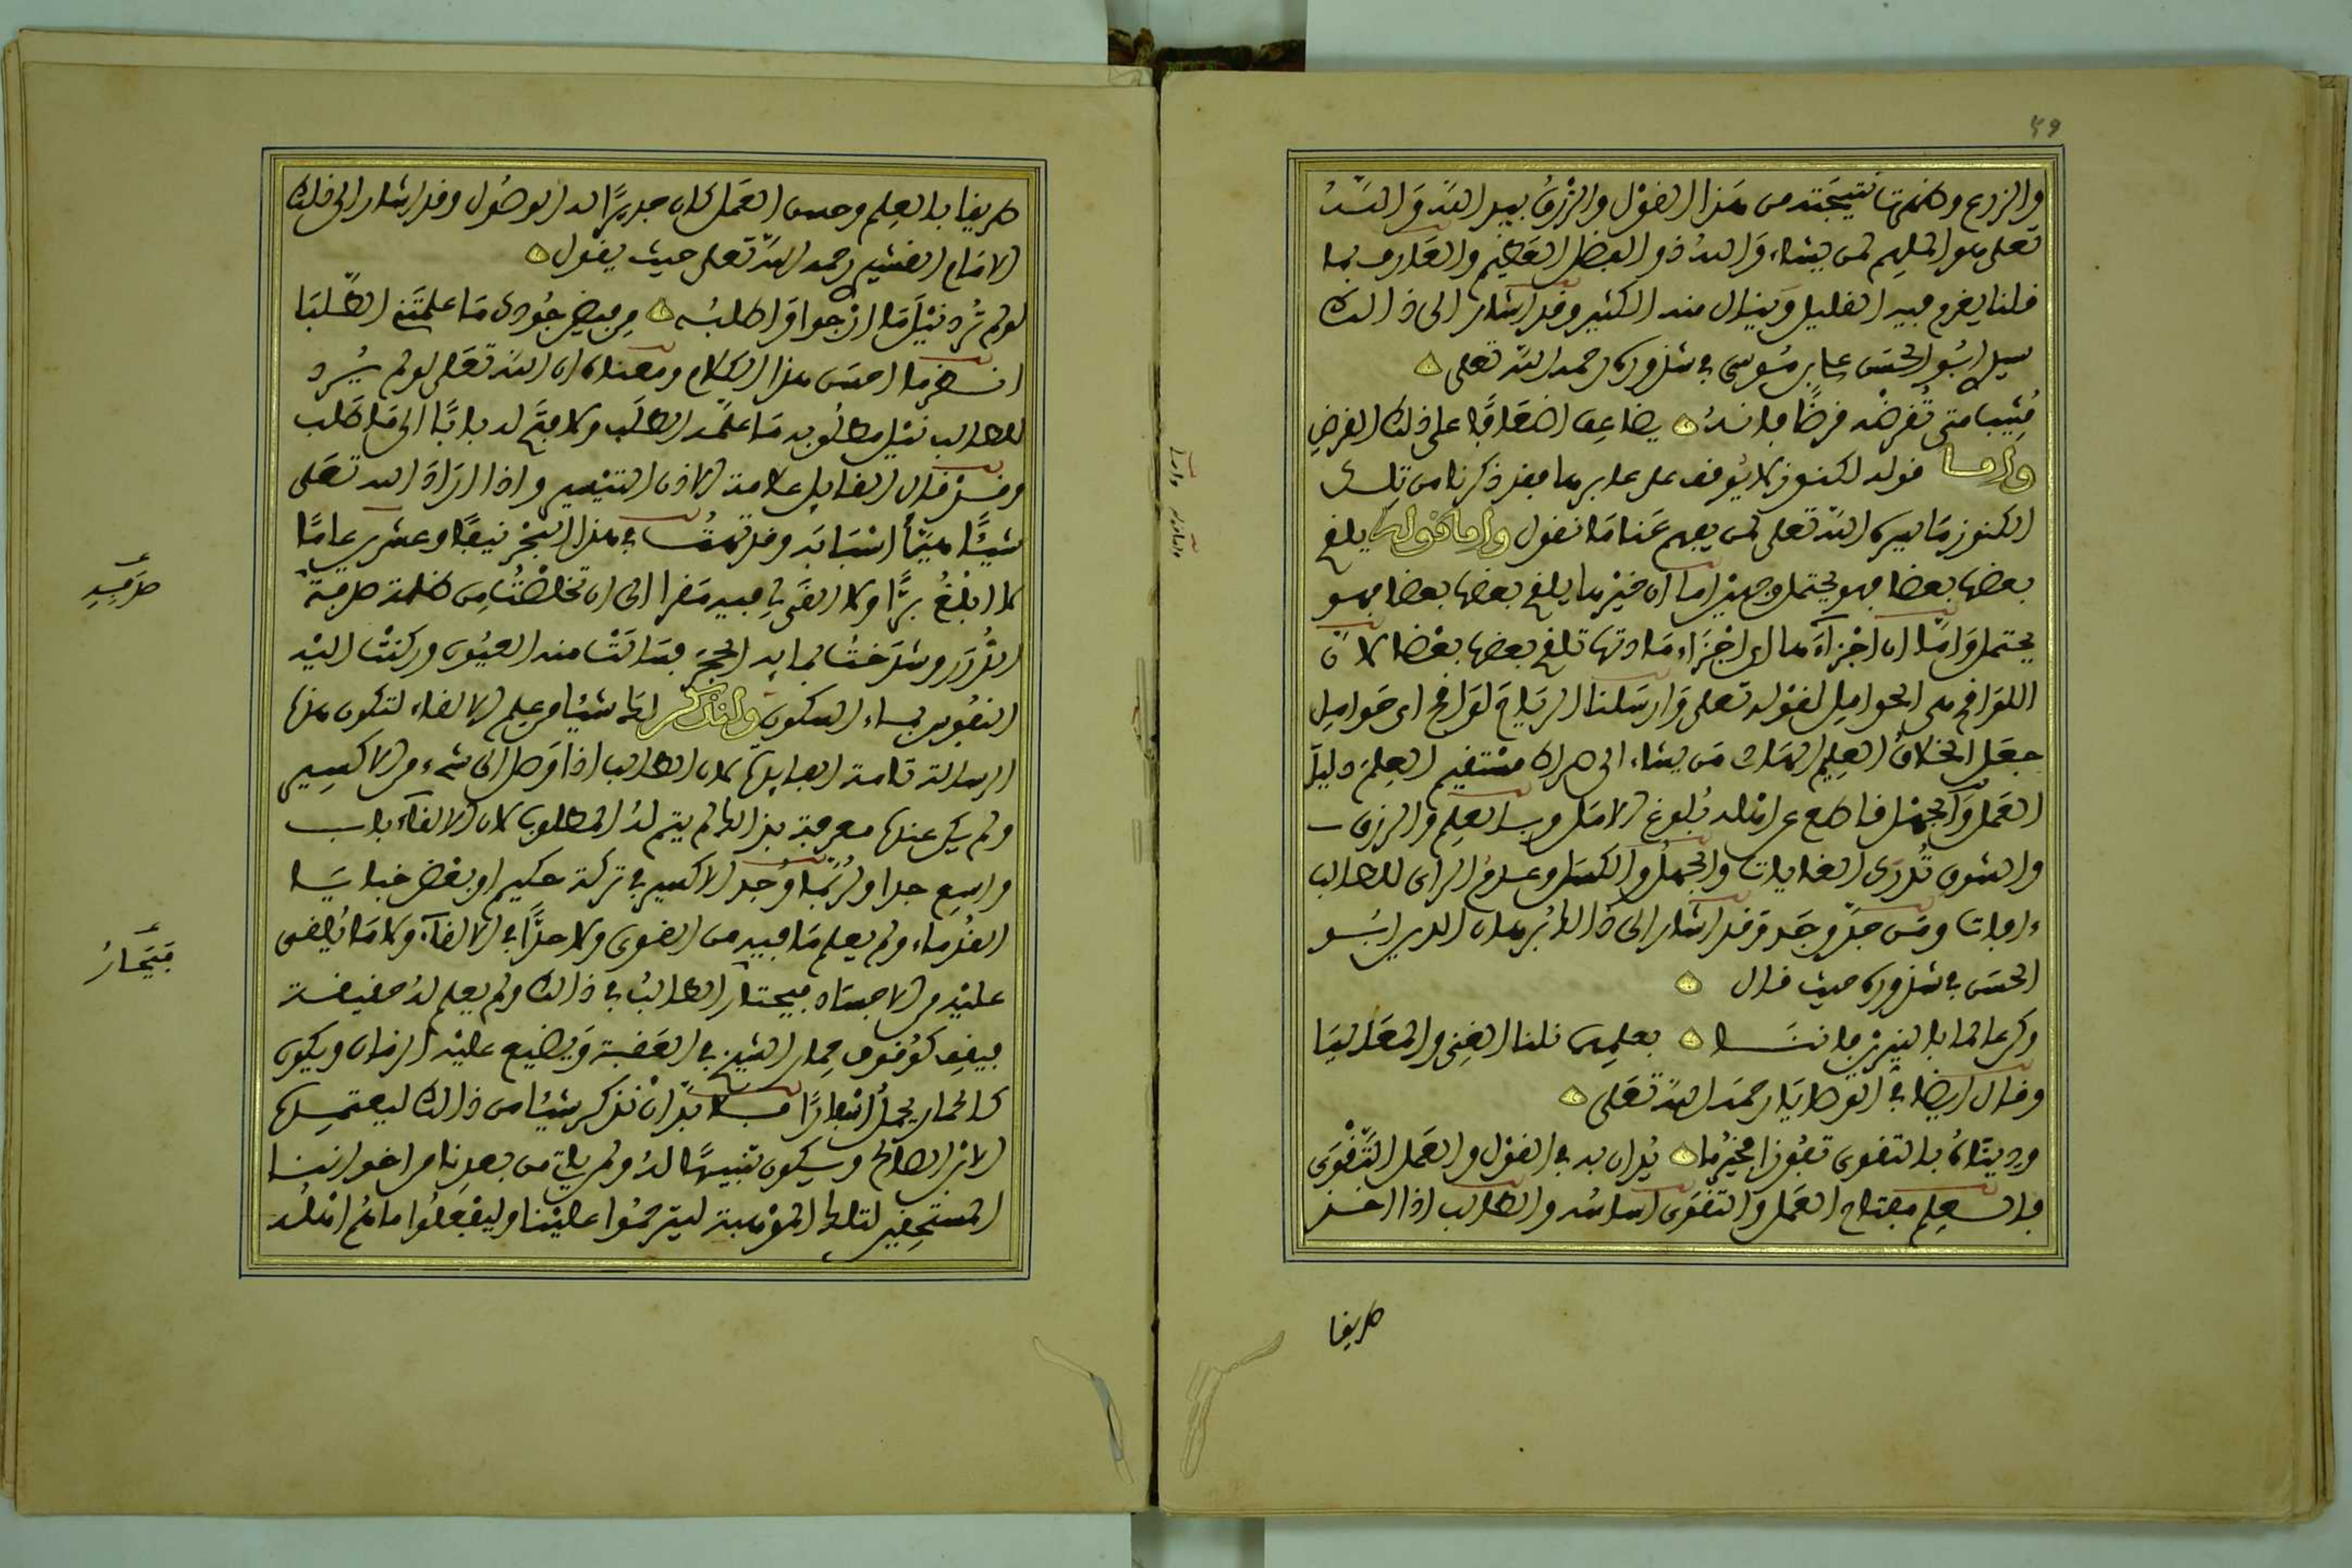 ٤٩
والزرع وكلمتها نتيجته من هذا القول والرزق بيد الله والله
تعلى هو الملهم لمن يشاء والله ذو الفضل العظيم والعارف بما
قلنا يفهم فيه القليل وينال منه الكثير وقد اشار الى ذالك
سيدي ابو الحسن علي بن موسى في شذوره رحمه الله تعلى
مثيبا متى تقرضه قرضا فانه يضاعف اضعافا على ذلك القرض
واما قوله لكنوز لا يوقف على عابرها فقد ذكرنا من تلك
الكنوز ما يسره الله تعلى لمن يفهم عنا ما نقول واما قوله يلقح
بعضها بعضا فهو يحتمل وجهين اما ان خيرها يلقح بعضها بعضا فهو
يحتمل واما ان اجزاءها اي اجزاء مادتها تلقح بعضها بعضا لان
اللواقح هي الحوامل لقوله تعلى وارسلنا الرياح لواقح اي حوامل
جعل الخلاق العليم الهادي من يشاء الى صراط مستقيم العلم دليل
العمل والجهل قاطع عن امثاله بلوغ الامل وبالعلم والرزق
والشوق تدرى الغايات والجهل والكسل وعدم الراي للطالب
ءافات ومن جد وجد وقد اشار الى ذالك برهان الدين ابو
الحسن في شذوره حيث قال
وكن عالما بالنيرين فاننا بعلمهما نلنا الغنى والمعاليا
وقال ايضا في القرطايا رحمه الله تعلى
ودينك بالتقوى تفوز بخيرها يدان به في القول والعمل التقوى
فالعلم مفتاح العمل والتقوى اساسه والطالب اذا اخذ
طريقا
طريقا بالعلم وحسن العمل كان جديرا له الوصول وقد اشار الى ذلك
الامام القشيري رحمه الله تعلى حيث يقول
لو لم ترد نيل ما ارجوا واطلبه من فيض جودك ما علمتني الطلبا
انظر ما احسن هذا الكلام ومعناه ان الله تعلى لو لم يرد
للطالب نيل مطلوبه ما علمه الطلب ولا فتح له بابا الى ما طلب
وقد قال القايل علامة الاذن التيسير واذا اراد الله تعلى
شيئا هيأ اسبابه وقد تهت في هذا البحر نيفا وعشرين عاما
لا ابلغ برا ولا القى لي فيه مقرا الى ان تخلصت من ظلمة
الغرر وشدخت لما به الحجر فسالت منه العيون وركنت اليه
النفوس بهاء السكون ولنذكر لك شيئا من علم الالقاء لتكون هذه
الرسالة تامة الفايدة لان الطالب اذا وصل الى شيء من الاكسير
ولم يكن عنده معرفة بذالك لم يتم له المطلوب لان الالقاء باب
واسع جدا ولربما وجد الاكسير في تركة حكيم او بعض خبايا
القدماء ولم يعلم ما فيه من القوى ولا حدا في الالقاء ولا ما يلقى
عليه من الاجساد فيحتار الطالب في ذالك ولم يعلم له حقيقة
فيقف كوقوف حمار الشيخ في العقبة ويضيع عليه الزمان ويكون
كالحمار يحمل اسفارا فلا بد ان نذكر شيئا من ذالك ليعتمده
الابن الصالح ويكون تنبيها له ولم يات من بعدنا من اخواننا
المستحقين لتلك الموهبة ليترحموا علينا وليفعلوا ما هم اهله
فيتحار